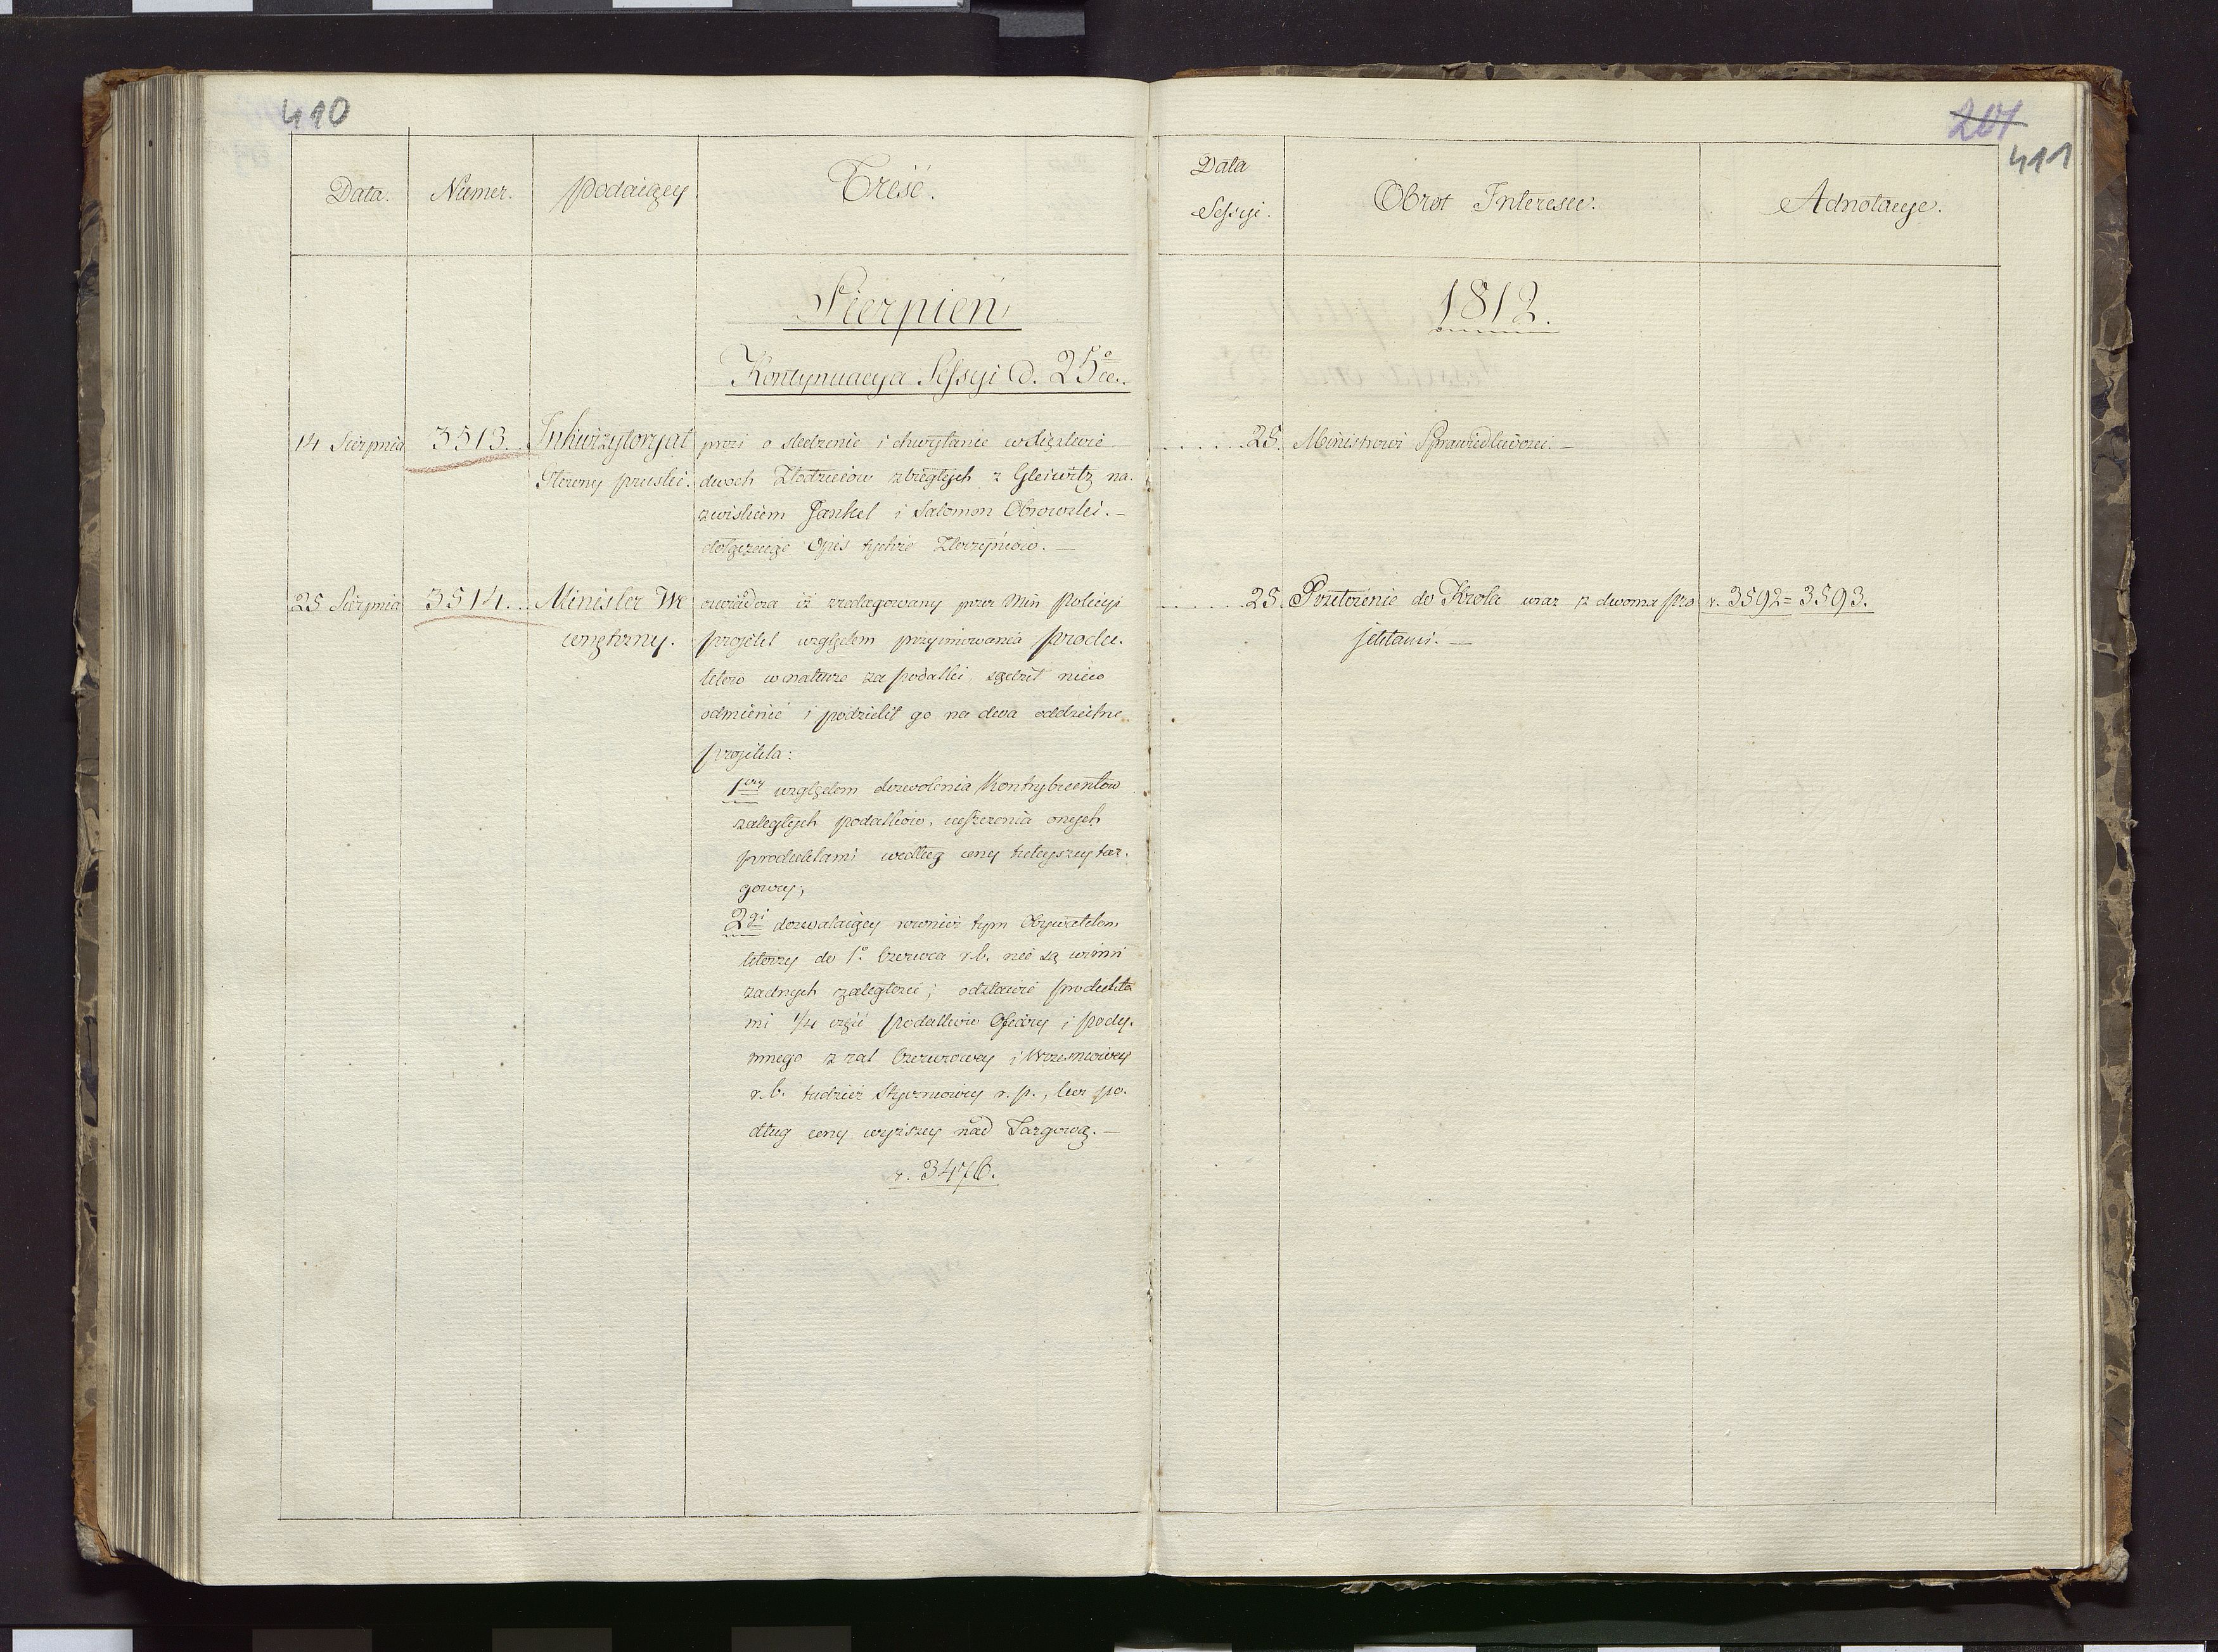 410
Data. Numer. podaiący Treść.
Sierpień
Kontynuacya Sessyi D. 25° ce.
14 Sierpnia 3513. Inkwizytoryat prosi o sledzenie i chwytanie
Głowny pruski. dwoch Złodzieiow zbiegłych z Gleiwitz na-
zwiskiem Jankel i Salomon
dołączaiąc Opis tychże Złoczyńcow. —
25 Sierpnia 3514. Minister We oswiadcza iż zredagowany przez Min Policyi
wnętrzny. projekt względem przyimowania produ-
któw w naturze za podatki, sądził nieco
odmienić i podzielił go na dwa oddzielne
projekta:
1wszy względem dozwolenia Kontrybuentow
zaległych podatkow, uiszczenia onych
produktami według ceny tuteyszey tar-
gowey;
2gi dozwalaiący rownież tym Obywatelom
ktorzy do 1° Czerwca r.b. nie są winni
żadnych zaległosci; odstawić produkta
mi 1/4 część podatkow Ofiary i pody-
mnego z rat Czerwcowey i Wrzesniowey
r.b. tudzież Styczniowey r.p., lecz po-
dług ceny wyższey nad Targową. —
v. 3476.
201
411
Data
Sessyi. Obrot Interesu. Adnotacye.
1812.
25. Ministrowi Sprawiedliwosci. —
25. Przełożenie do Krola wraz z dwoma pro v. 3592 = 3593.
jektami. —